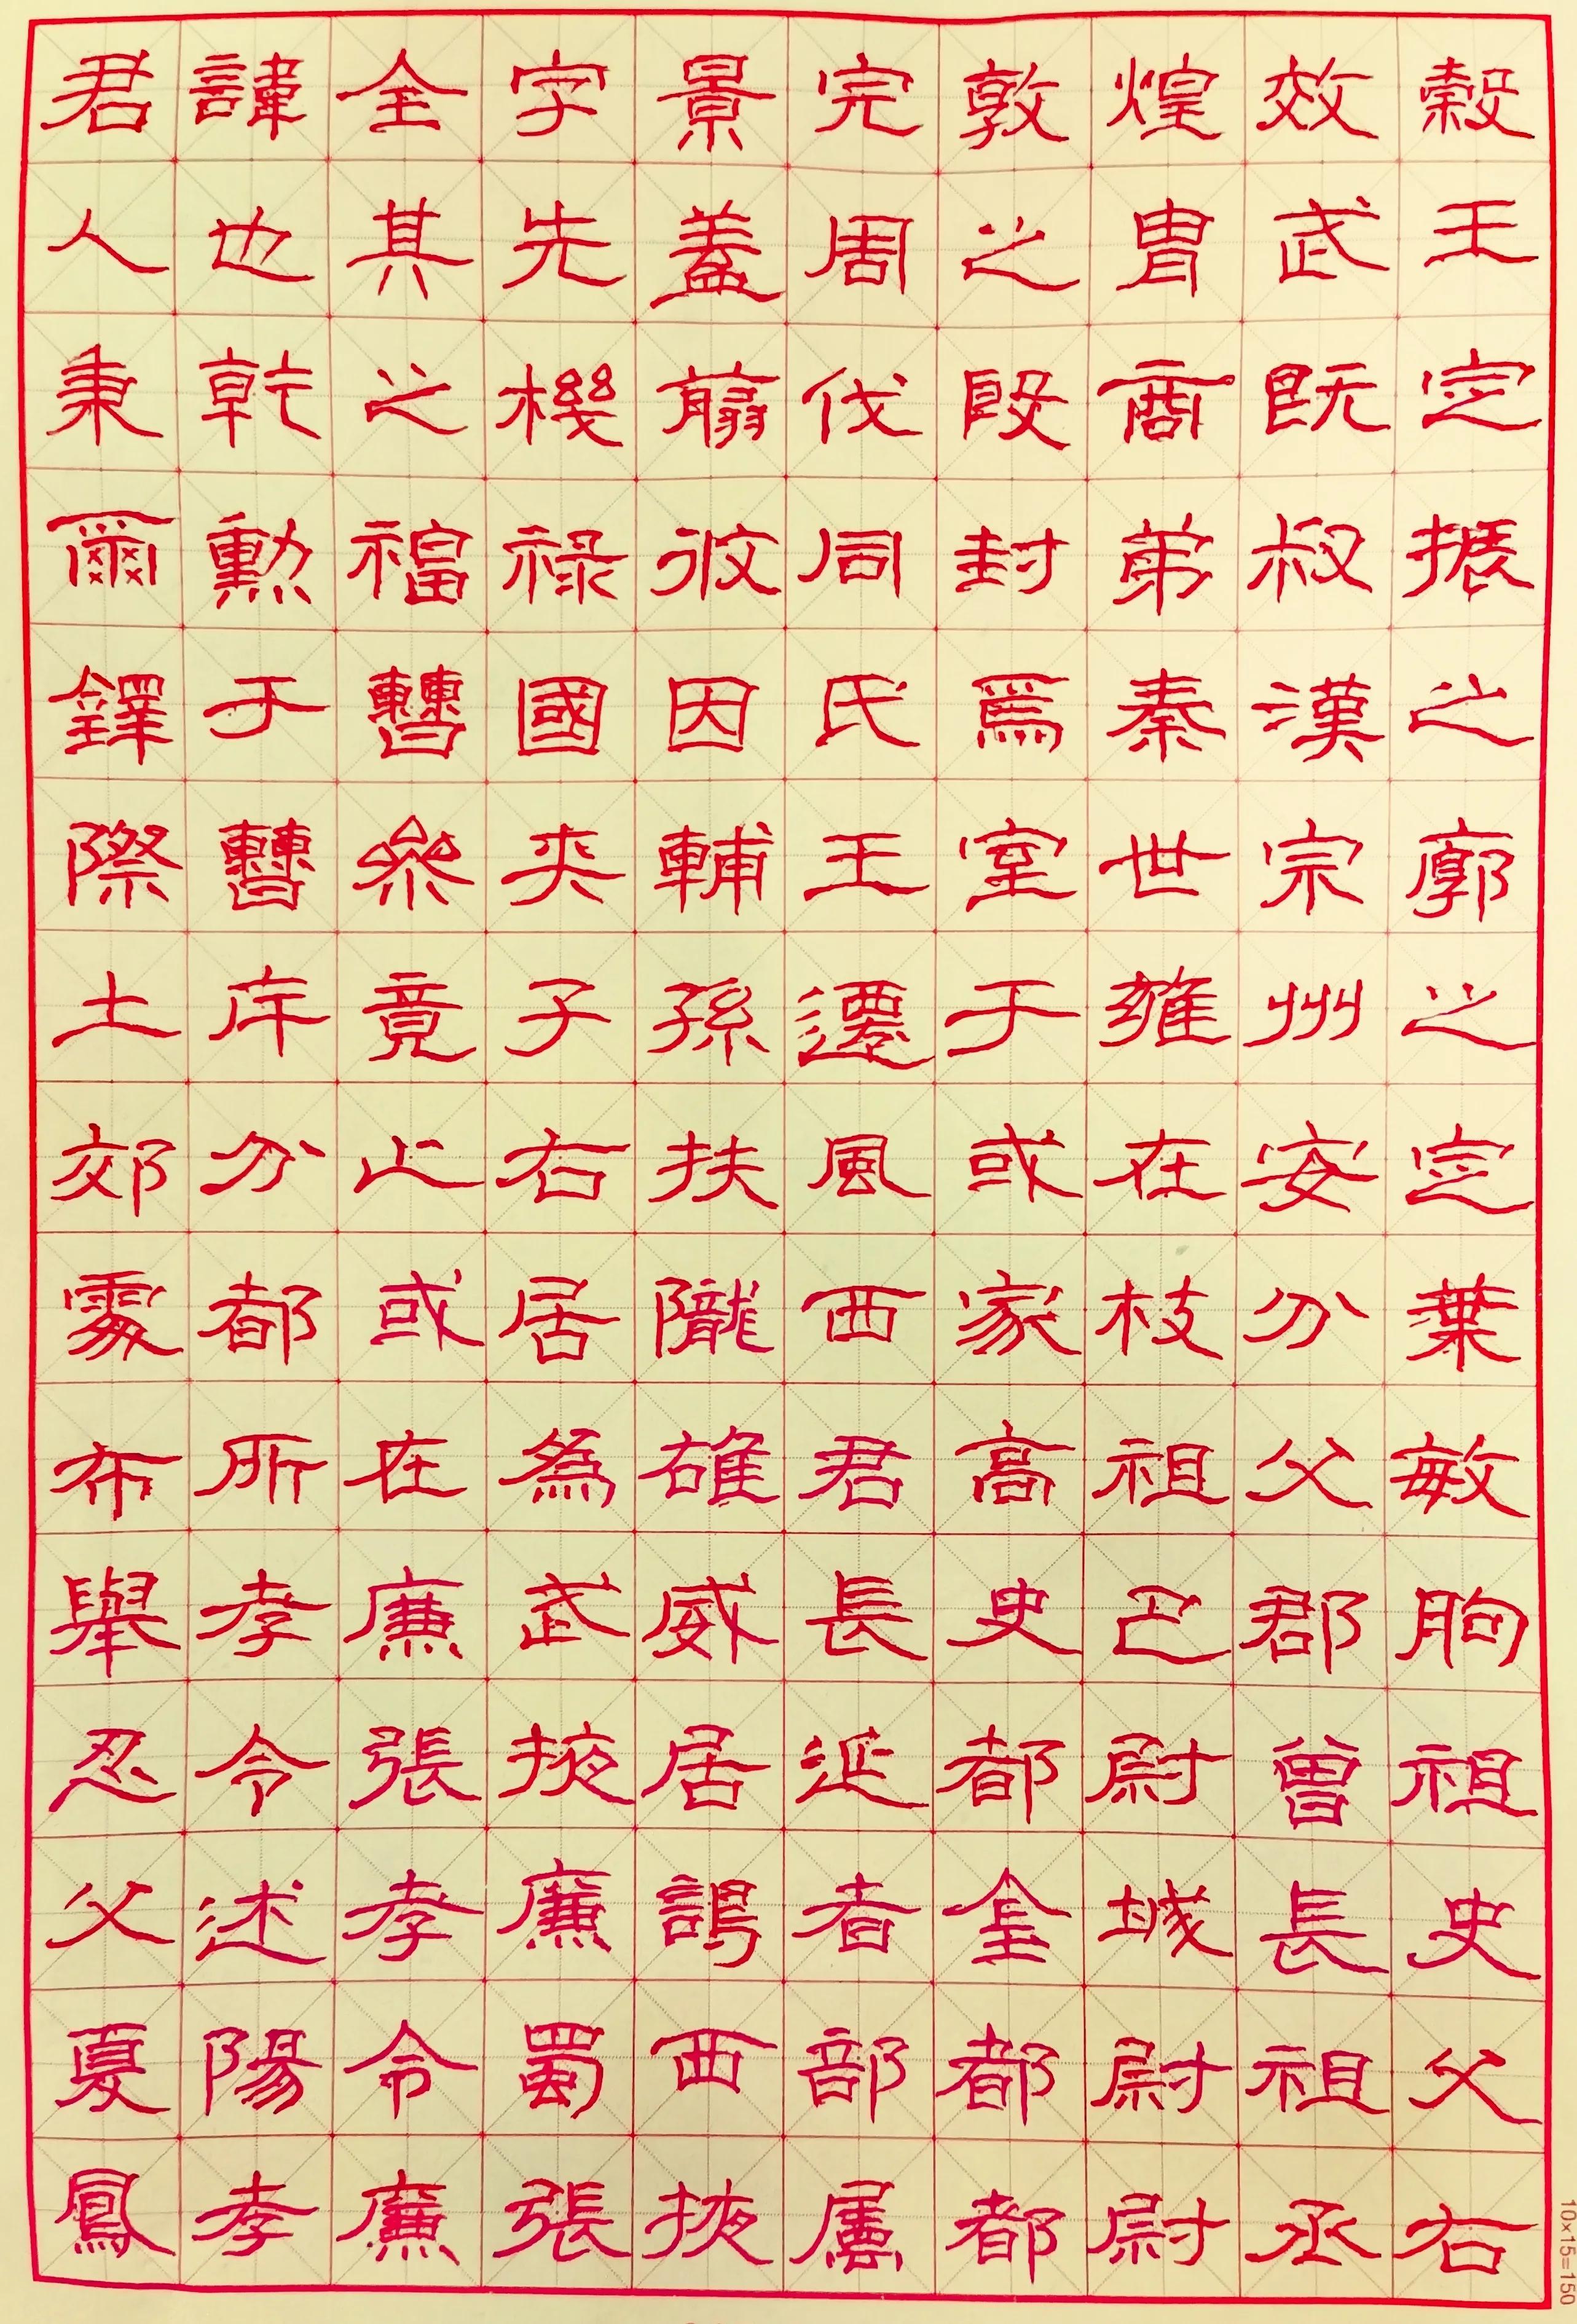 君諱全字景完敦煌效穀
人也其先蓋周之胄武王
秉乾之機翦伐殷商既定
爾勳福祿攸同封弟叔振
鐸于曹國因氏焉秦漢之
際曹參夾輔王室世宗廓
土斥竟子孫遷于雍州之
郊分止右扶風或在安定
處都或居隴西家枝分葉
布所在為雄君高祖父敏
舉孝廉武威長史巴郡朐
忍令張掖居延都尉曾祖
父述孝廉謁者金城長史
夏陽令蜀西部都尉祖父
鳳孝廉張掖屬都尉丞右
10×15=150